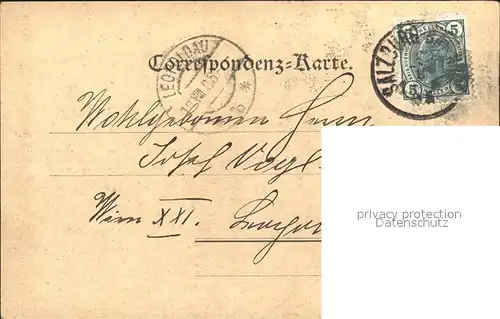 Correspondenz-Karte.
SALZBURG
5 5
LEOPOLDAU
Wohlgeboren Herrn
Josef Vogl
Wien XXI.
privacy protection
Datenschutz